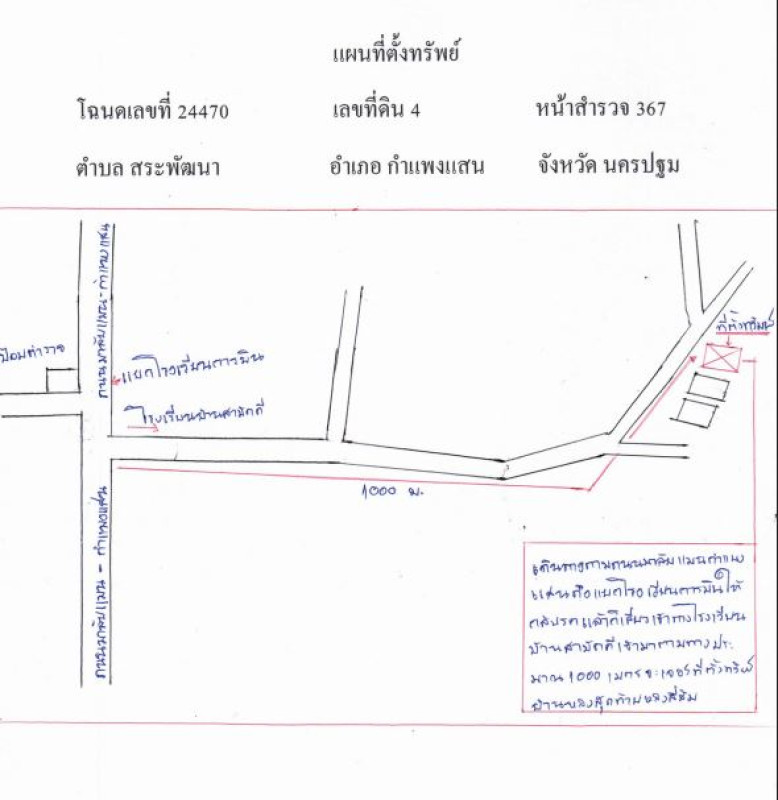 แผนที่ตั้งทรัพย์
โฉนดเลขที่ 24470 เลขที่ดิน 4 หน้าสำรวจ 367
ตำบล สระพัฒนา อำเภอ กำแพงแสน จังหวัด นครปฐม
ถนนมาลัยแมน-กำแพงแสน
ป้อมตำรวจ
แยกโรงเรียนการบิน
โรงเรียนบ้านสามัคคี
ที่ตั้งทรัพย์
1000 ม.
ถนนมาลัยแมน - กำแพงแสน
เดินทางตามถนนมาลัยแมนกำแพง
แสนถึงแยกโรงเรียนการบินให้
กลับรถแล้วก็เลี้ยวเข้าทางโรงเรียน
บ้านสามัคคีเข้ามาตามทางประ
มาณ 1000 เมตรจะเจอที่ตั้งทรัพย์
บ้านหลังสุดท้ายหลังสีส้ม